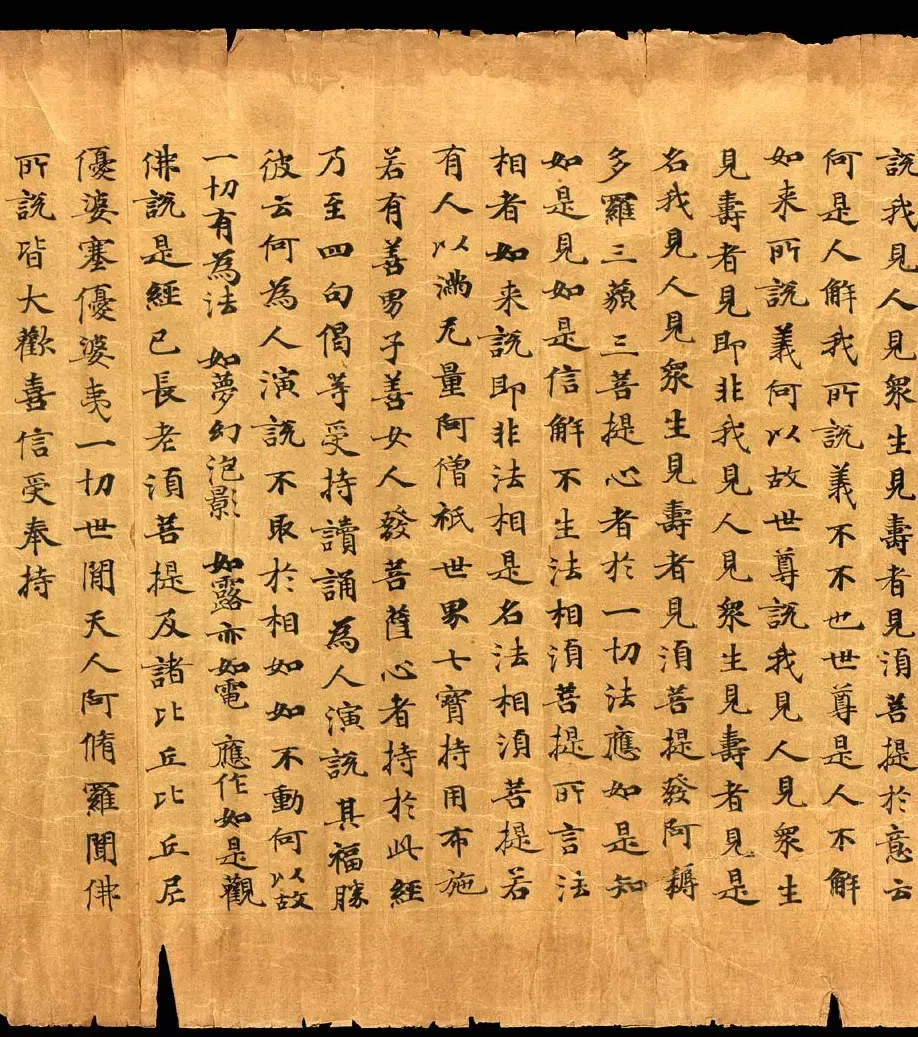 說我見人見眾生見壽者見湏菩提於意云
何是人解我所說義不不也世尊是人不解
如来所說義何以故世尊說我見人見眾生
見壽者見即非我見人見眾生見壽者見是
名我見人見眾生見壽者見湏菩提發阿耨
多羅三藐三菩提心者於一切法應如是知
如是見如是信解不生法相湏菩提所言法
相者如来說即非法相是名法相湏菩提若
有人以滿无量阿僧祇世界七寶持用布施
若有善男子善女人發菩薩心者持於此經
乃至四句偈等受持讀誦為人演說其福勝
彼云何為人演說不取於相如如不動何以故
一切有為法 如夢幻泡影 如露亦如電 應作如是觀
佛說是經已長老湏菩提及諸比丘比丘尼
優婆塞優婆夷一切世間天人阿脩羅聞佛
所說皆大歡喜信受奉持